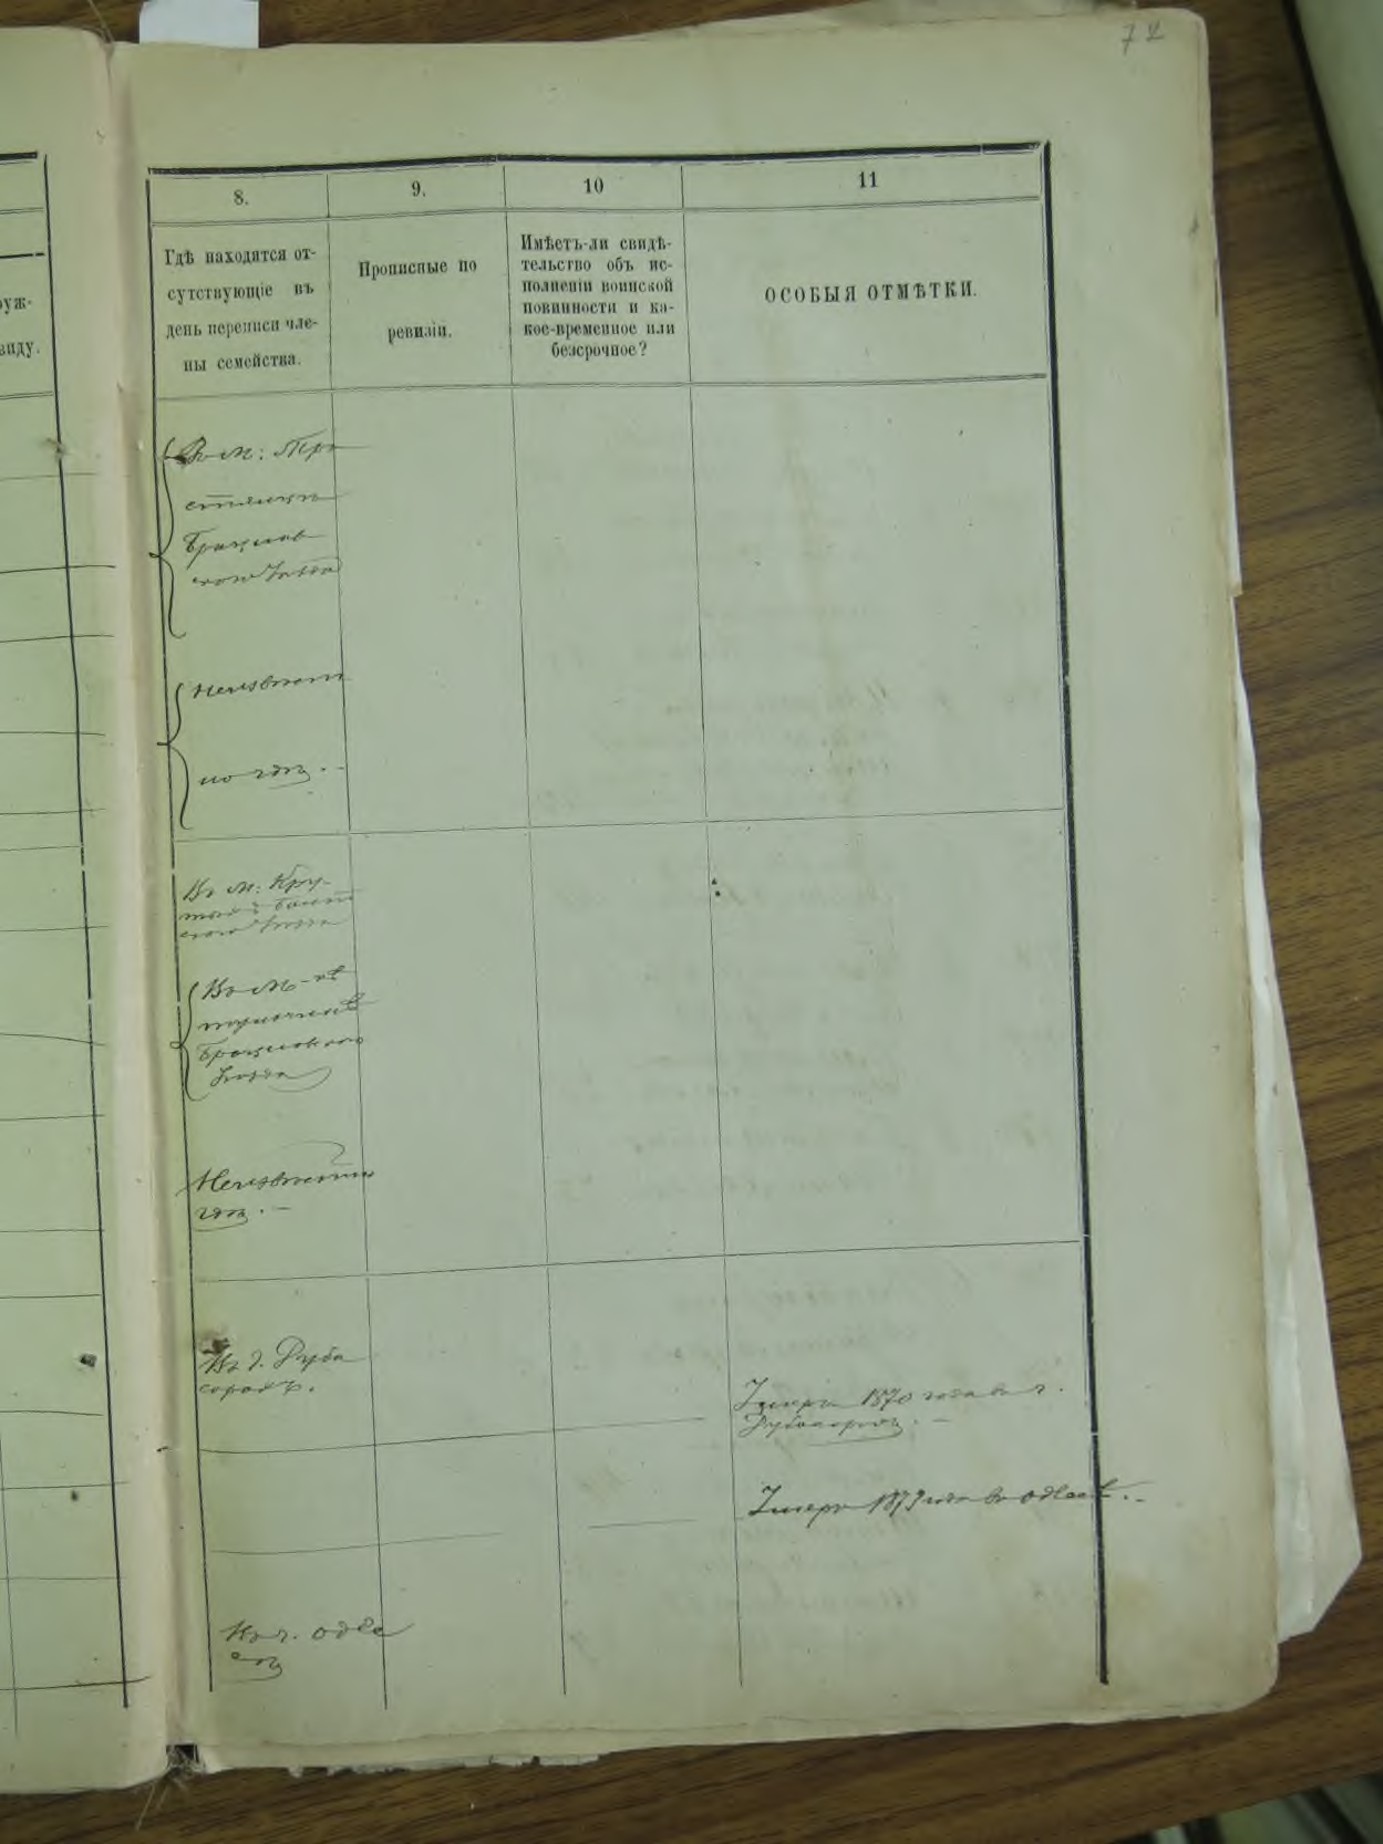 72
уж-
виду.
8.
9.
10
11
Гдѣ находятся от-
сутствующіе въ
день переписи чле-
ны семейства.
Прописные по
ревизіи.
Имѣетъ-ли свидѣ-
тельство объ ис-
полненіи воинской
повинности и ка-
кое-временное или
безсрочное?
ОСОБЫЯ ОТМѢТКИ.
Въ м:
Брацлав
скаго уѣзда
Неизвѣстн
но гдѣ.
Въ м: Кру-
скаго уѣзда
Въ м-кѣ
Брацлавскаго
уѣзда
Неизвѣстно
гдѣ. —
Въ г.
Умеръ 1870 года въ г.
Умеръ 1879 года въ Одессѣ. -
Въ г. Оде
ссѣ